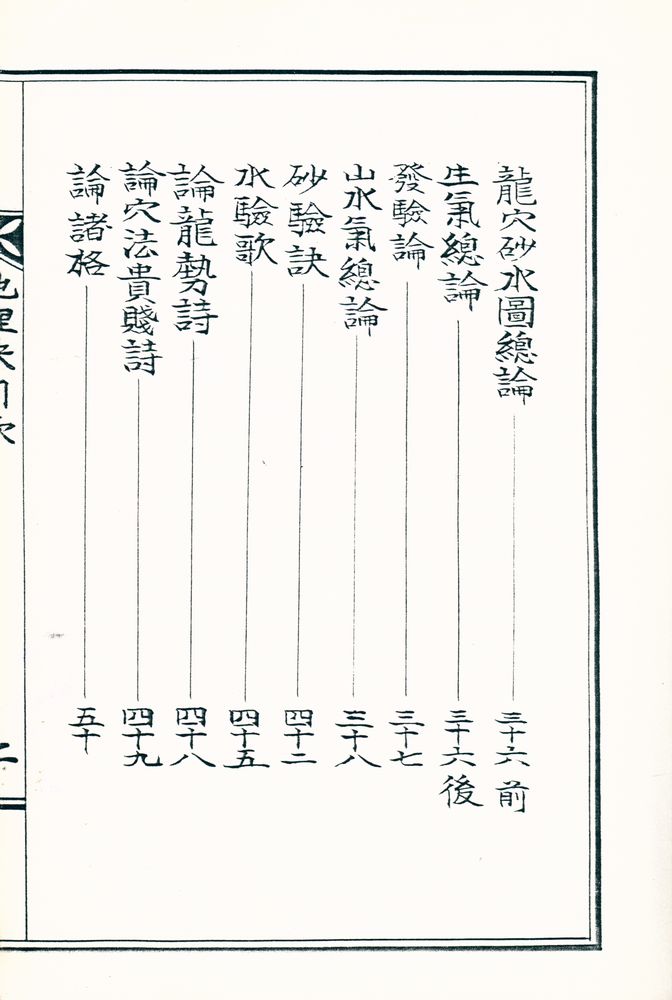 龍穴砂水圖總論 三十六前
生氣總論 三十六後
發驗論 三十七
山水氣總論 三十八
砂驗訣 四十二
水驗歌 四十五
論龍勢詩 四十八
論穴法貴賤詩 四十九
論諸格 五十